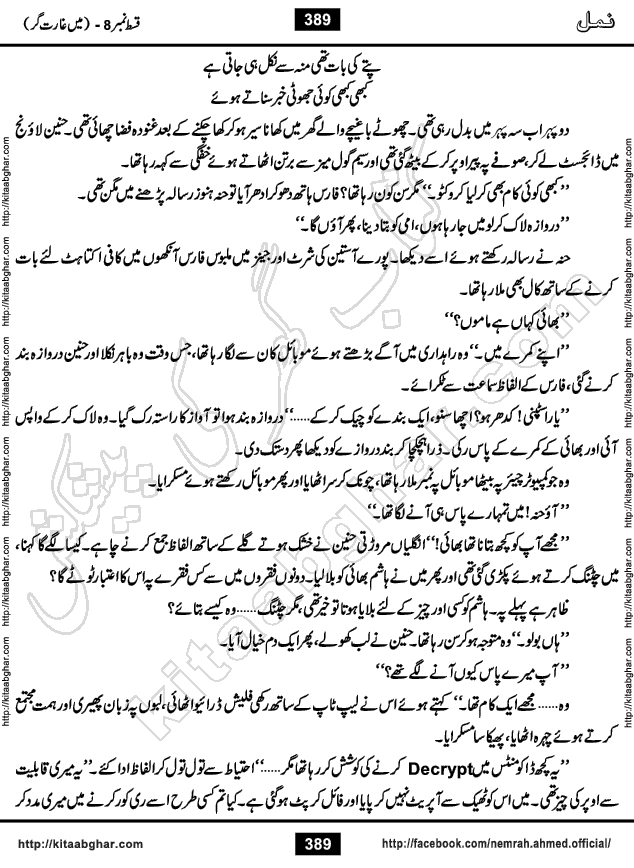 قسط نمبر 8 - (میں غارت گر)
389
نمل
پتے کی بات تھی منہ سے نکل ہی جاتی ہے
کبھی کبھی کوئی جھوٹی خبر سناتے ہوئے
دوپہر اب سہ پہر میں بدل رہی تھی۔ چھوٹے باغیچے والے گھر میں کھانا سیر ہو کر کھا چکنے کے بعد غنودہ فضا چھائی تھی۔ حنین لاؤنج
میں ڈائجسٹ لے کر صوفے پہ پیر اوپر کر کے بیٹھ گئی تھی اور سیم گول میز سے برتن اٹھاتے ہوئے خفگی سے کہہ رہا تھا۔
”کبھی کوئی کام بھی کر لیا کرو کٹو۔“ مگر سن کون رہا تھا؟ فارس ہاتھ دھو کر ادھر آیا تو حنہ ہنوز رسالہ پڑھنے میں مگن تھی۔
”دروازہ لاک کر لو میں جا رہا ہوں، امی کو بتا دینا، پھر آؤں گا۔“
حنہ نے رسالہ رکھتے ہوئے اسے دیکھا۔ پورے آستین کی شرٹ اور جینز میں ملبوس فارس آنکھوں میں کافی اکتاہٹ لئے بات
کرنے کے ساتھ کال بھی ملا رہا تھا۔
”بھائی کہاں ہے ماموں؟“
”اپنے کمرے میں۔“ وہ راہداری میں آگے بڑھتے ہوئے موبائل کان سے لگا رہا تھا، جس وقت وہ باہر نکلا اور حنین دروازہ بند
کرنے گئی، فارس کے الفاظ سماعت سے ٹکرائے۔
”یار اسٹپنی! کدھر ہو؟ اچھا سنو، ایک بندے کو چیک کر کے......“ دروازہ بند ہوا تو آواز کا راستہ رک گیا۔ وہ لاک کر کے واپس
آئی اور بھائی کے کمرے کے پاس رکی۔ ذرا ہچکچا کر بند دروازے کو دیکھا پھر دستک دی۔
وہ جو کمپیوٹر چیئر پہ بیٹھا موبائل پہ نمبر ملا رہا تھا، چونک کر سر اٹھایا اور پھر موبائل رکھتے ہوئے مسکرایا۔
”آؤ حنہ! میں تمہارے پاس ہی آنے لگا تھا۔“
”مجھے آپ کو کچھ بتانا تھا بھائی!“ انگلیاں مروڑتی حنین نے خشک ہوتے گلے کے ساتھ الفاظ جمع کرنے چاہے۔ کیسا لگے گا کہنا،
میں چٹنگ کرتے ہوئے پکڑی گئی تھی اور پھر میں نے ہاشم بھائی کو بلا لیا۔ دونوں فقروں میں سے کس فقرے پہ اس کا اعتبار ٹوٹے گا؟
ظاہر ہے پہلے پہ۔ ہاشم کو کسی اور چیز کے لئے بلایا ہوتا تو خیر تھی، مگر چٹنگ...... وہ کیسے بتائے؟
”ہاں بولو۔“ وہ متوجہ ہو کر سن رہا تھا۔ حنین نے لب کھولے، پھر ایک دم خیال آیا۔
”آپ میرے پاس کیوں آنے لگے تھے؟“
وہ...... مجھے ایک کام تھا۔“ کہتے ہوئے اس نے لیپ ٹاپ کے ساتھ رکھی فلیش ڈرائیو اٹھائی، لبوں پہ زبان پھیری اور ہمت مجتمع
کرتے ہوئے چہرہ اٹھایا، پھیکا سا مسکرایا۔
”یہ کچھ ڈاکومنٹس میں Decrypt کرنے کی کوشش کر رہا تھا مگر......“ احتیاط سے تول تول کر الفاظ ادا کئے۔ ”یہ میری قابلیت
سے اوپر کی چیز تھی۔ میں اس کو ٹھیک سے آپریٹ نہیں کر پایا اور فائل کرپٹ ہو گئی ہے۔ کیا تم کسی طرح اسے ری کور کرنے میں میری مدد کر
http://kitaabghar.com
http://kitaabghar.com
http://kitaabghar.com
http://kitaabghar.com
http://kitaabghar.com
http://kitaabghar.com
http://kitaabghar.com
http://kitaabghar.com
http://kitaabghar.com
http://kitaabghar.com
http://kitaabghar.com
http://kitaabghar.com
http://kitaabghar.com
http://kitaabghar.com
کتاب گھر کی پیشکش
kitaabghar.com
http://kitaabghar.com
389
http://facebook.com/nemrah.ahmed.official/